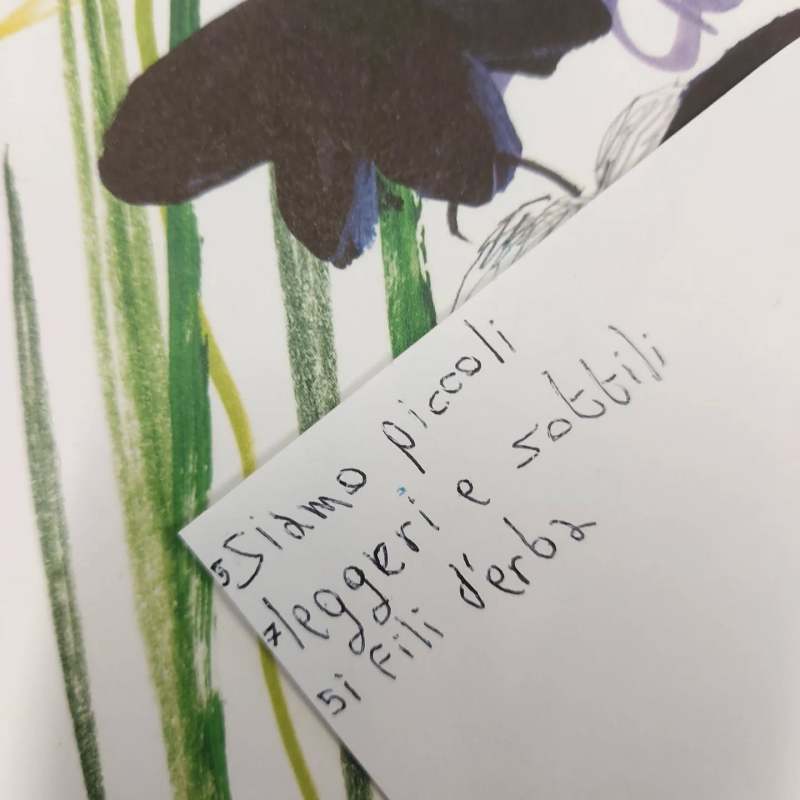 5 Siamo piccoli
7 leggeri e sottili
5 i fili d'erba